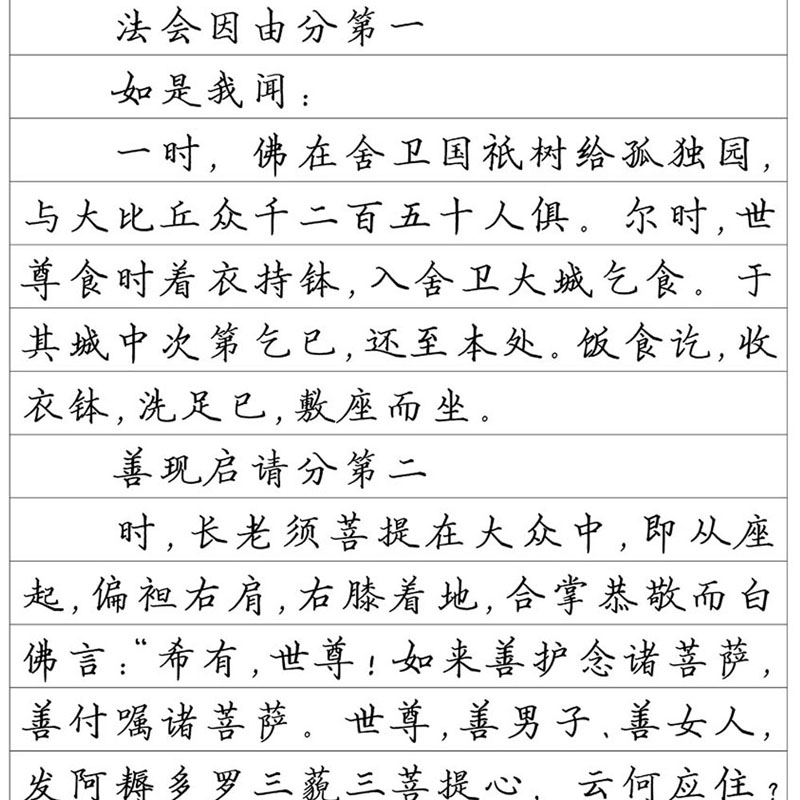 法会因由分第一
如是我闻：
一时，佛在舍卫国祇树给孤独园，
与大比丘众千二百五十人俱。尔时，世
尊食时着衣持钵，入舍卫大城乞食。于
其城中次第乞已，还至本处。饭食讫，收
衣钵，洗足已，敷座而坐。
善现启请分第二
时，长老须菩提在大众中，即从座
起，偏袒右肩，右膝着地，合掌恭敬而白
佛言：“希有，世尊！如来善护念诸菩萨，
善付嘱诸菩萨。世尊，善男子、善女人，
发阿耨多罗三藐三菩提心，云何应住？